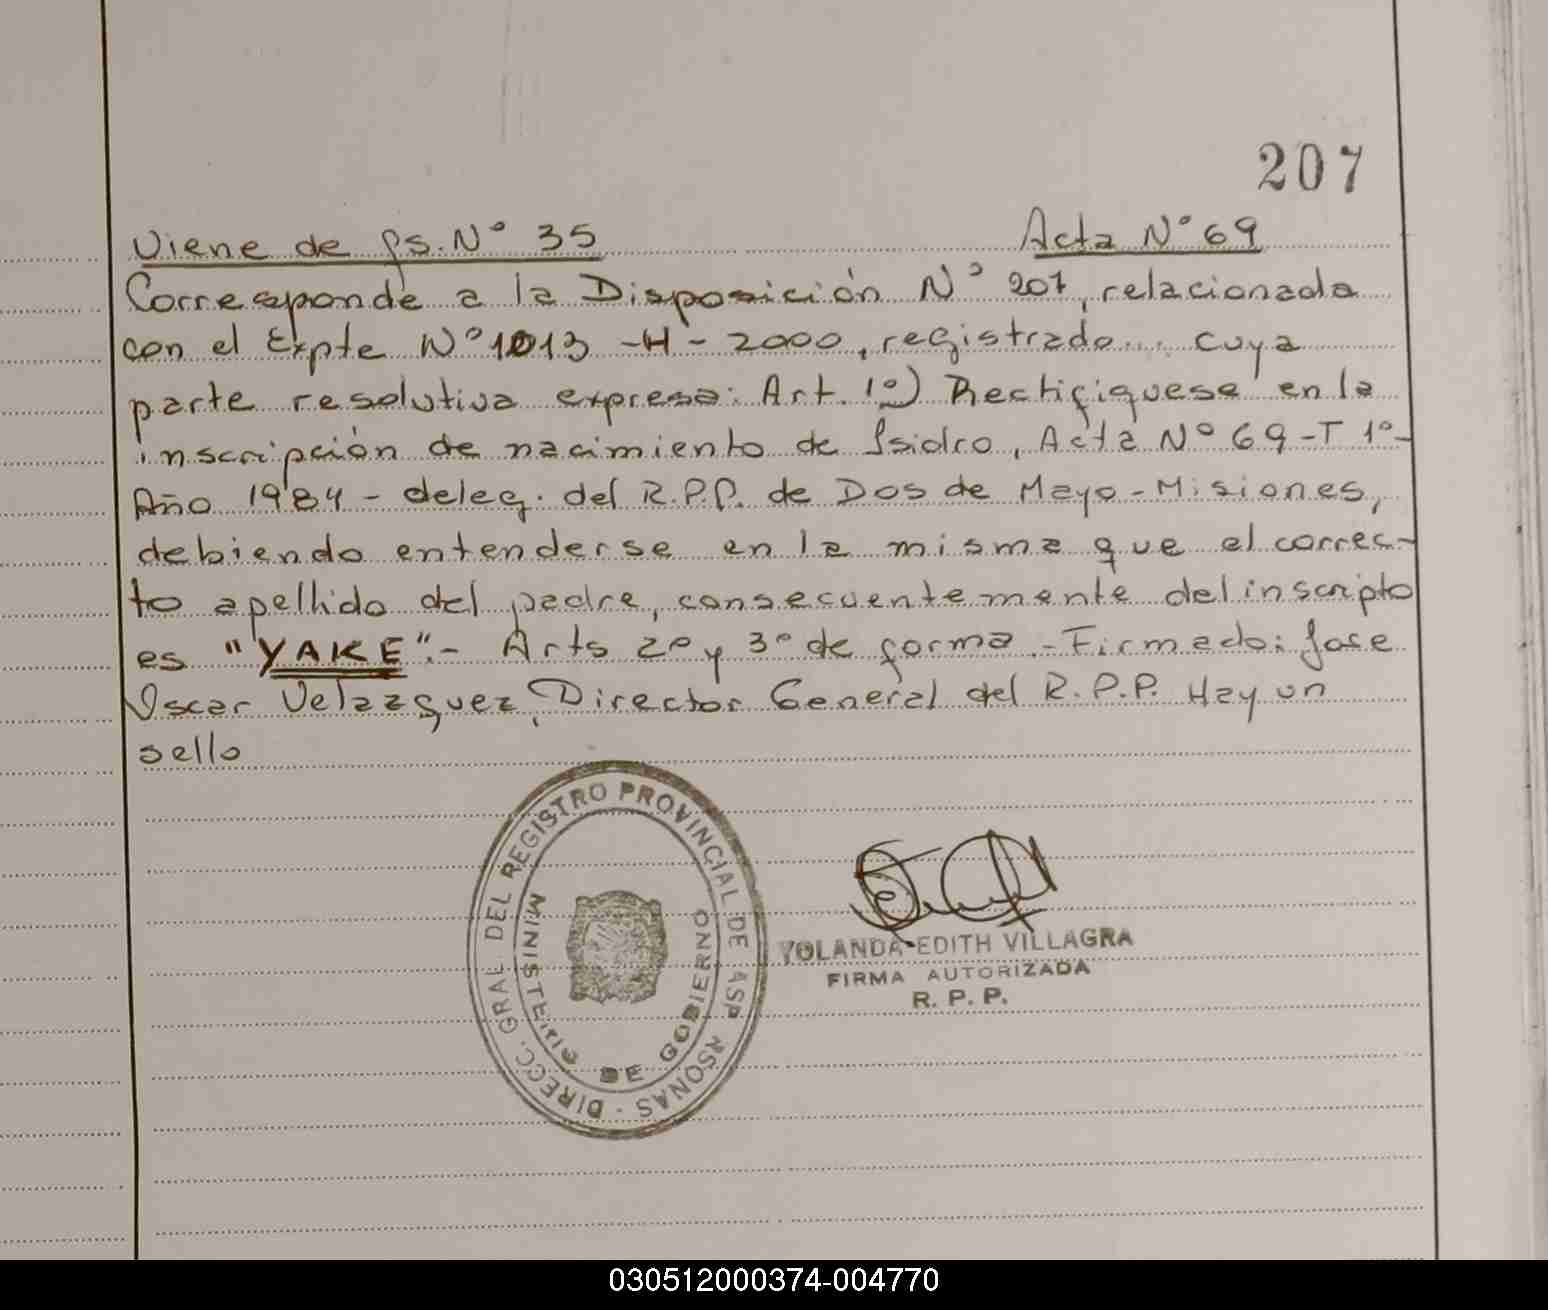 207
Viene de fs. Nº 35 Acta Nº 69
Corresponde a la Disposición Nº 207, relacionada
con el Expte Nº 1013 -H- 2000, registrado... cuya
parte resolutiva expresa: Art. 1º) Rectifiquese en la
inscripción de nacimiento de Isidro, Acta Nº 69 -T 1º-
Año 1984 - deleg. del R.P.P. de Dos de Mayo - Misiones,
debiendo entenderse en la misma que el correc-
to apellido del padre, consecuentemente del inscripto
es "YAKE".- Arts 2º y 3º de forma.- Firmado: Jose
Oscar Velazquez, Director General del R.P.P. Hay un
sello
DIRECC. GRAL DEL REGISTRO PROVINCIAL DE ASP RSONAS -
MINISTERIO DE GOBIERNO
YOLANDA EDITH VILLAGRA
FIRMA AUTORIZADA
R. P. P.
030512000374-004770